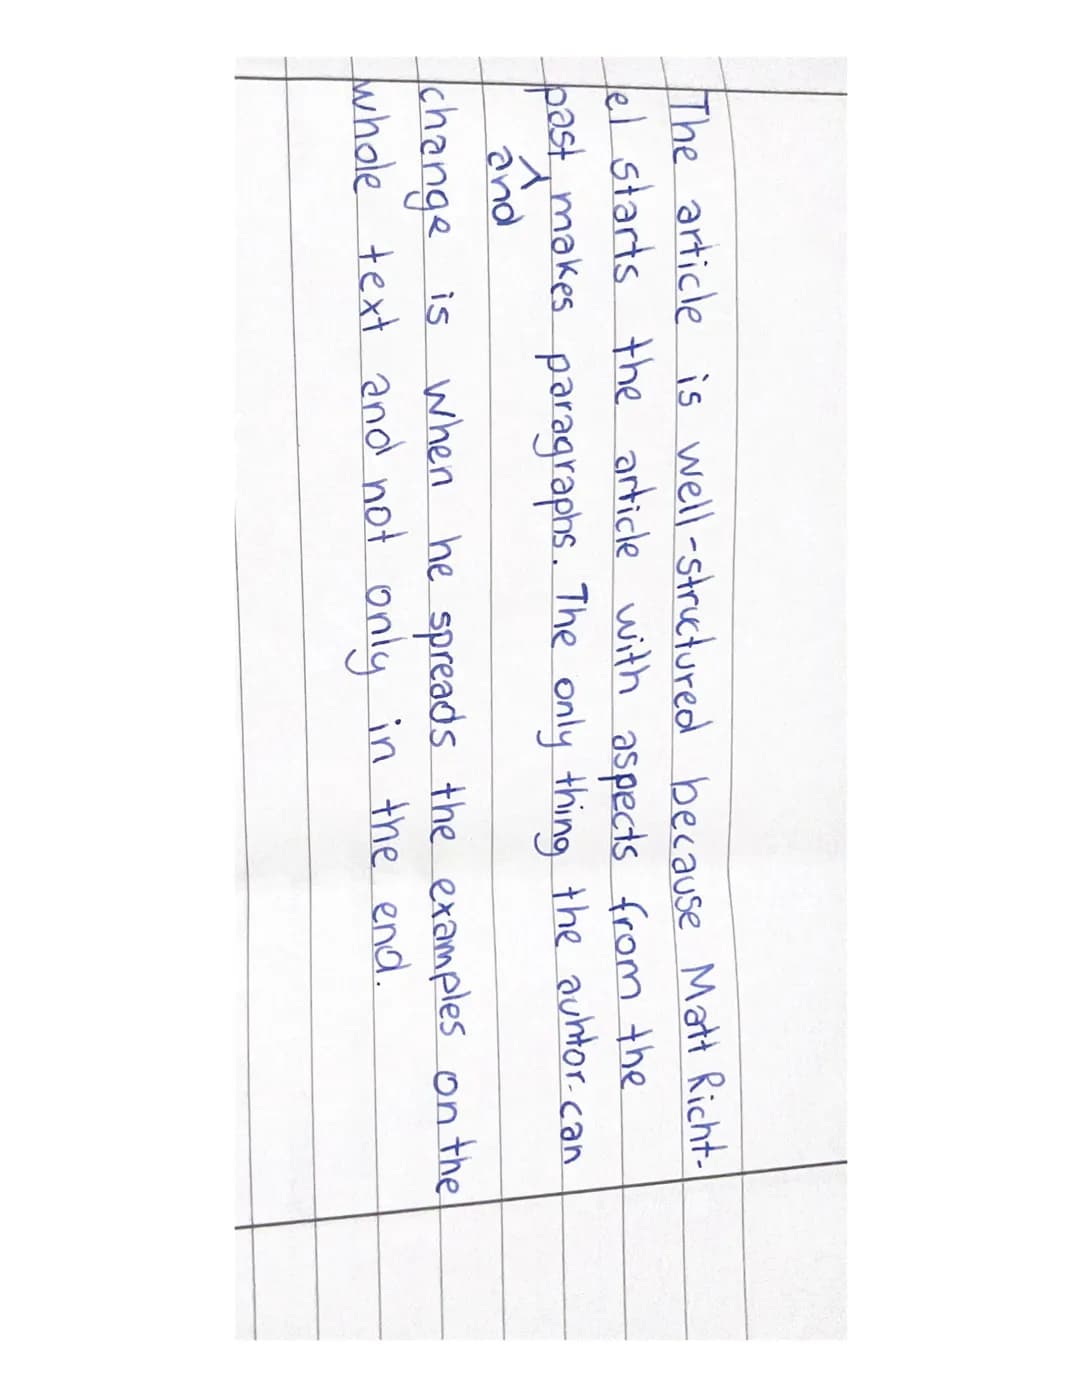 The article is well-structured because Matt Richt-
el starts the article with aspects from the
past makes paragraphs. The only thing the auhtor can
and
change is when he spreads the examples on the
whole text and not only in the end.